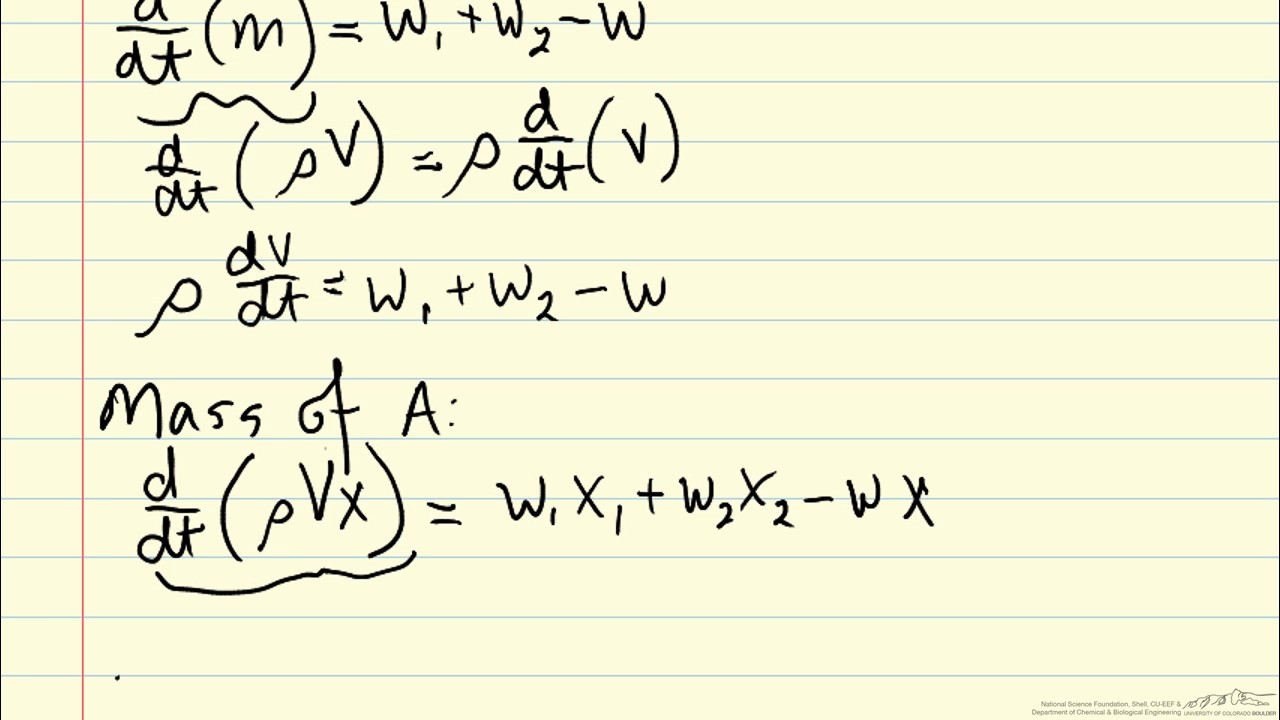 d/dt (m) = W₁ + W₂ − W
d/dt (ρV) = ρ d/dt (V)
ρ dV/dt = W₁ + W₂ − W
Mass of A:
d/dt (ρVX) = W₁X₁ + W₂X₂ − WX
National Science Foundation, Shell, CU-EEF &
Department of Chemical & Biological Engineering UNIVERSITY OF COLORADO BOULDER